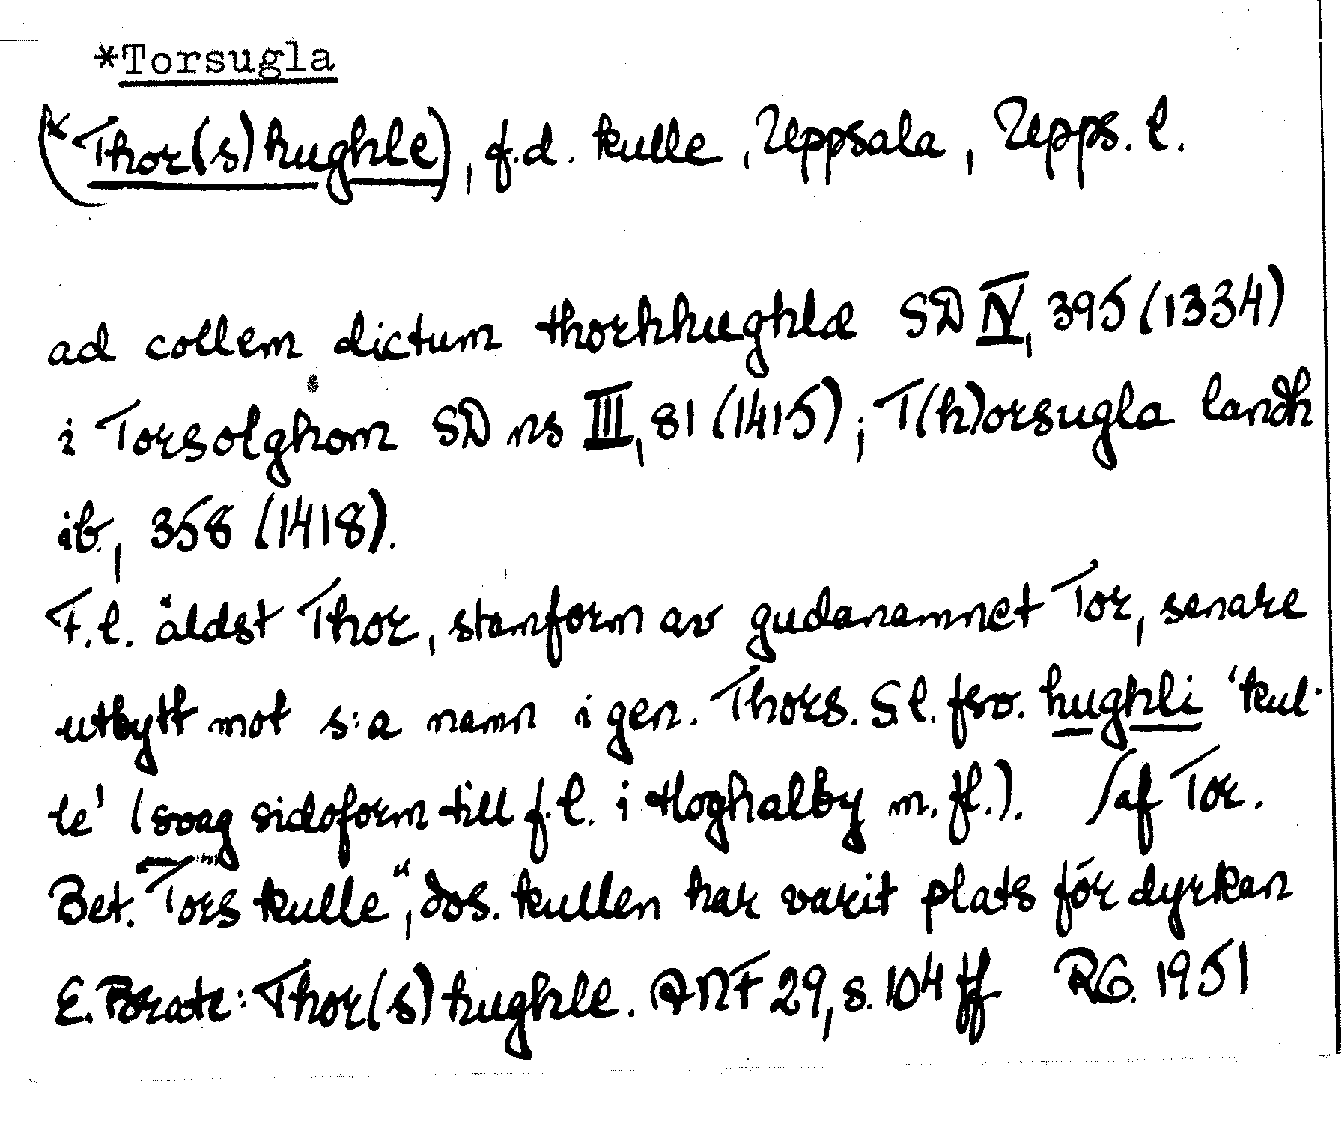 *Torsugla
(*Thor(s)hughle), f.d. kulle, Uppsala, Upps. l.
ad collem dictum thorhhughlæ SD IV, 395 (1334)
i Torsolghom SD ns III, 81 (1415); T(h)orsugla landh
ib., 358 (1418).
F.l. äldst Thor, stamform av gudanamnet Tor, senare
utbytt mot s:a namn i gen. Thors. S.l. fsv. hughli 'kul-
le' (svag sidoform till f.l. i Hoghalby m.fl.). /af Tor.
Bet. "Tors kulle", dvs. kullen har varit plats för dyrkan
E. Brate: Thor(s)hughle. ANF 29, s. 104 ff RG. 1951